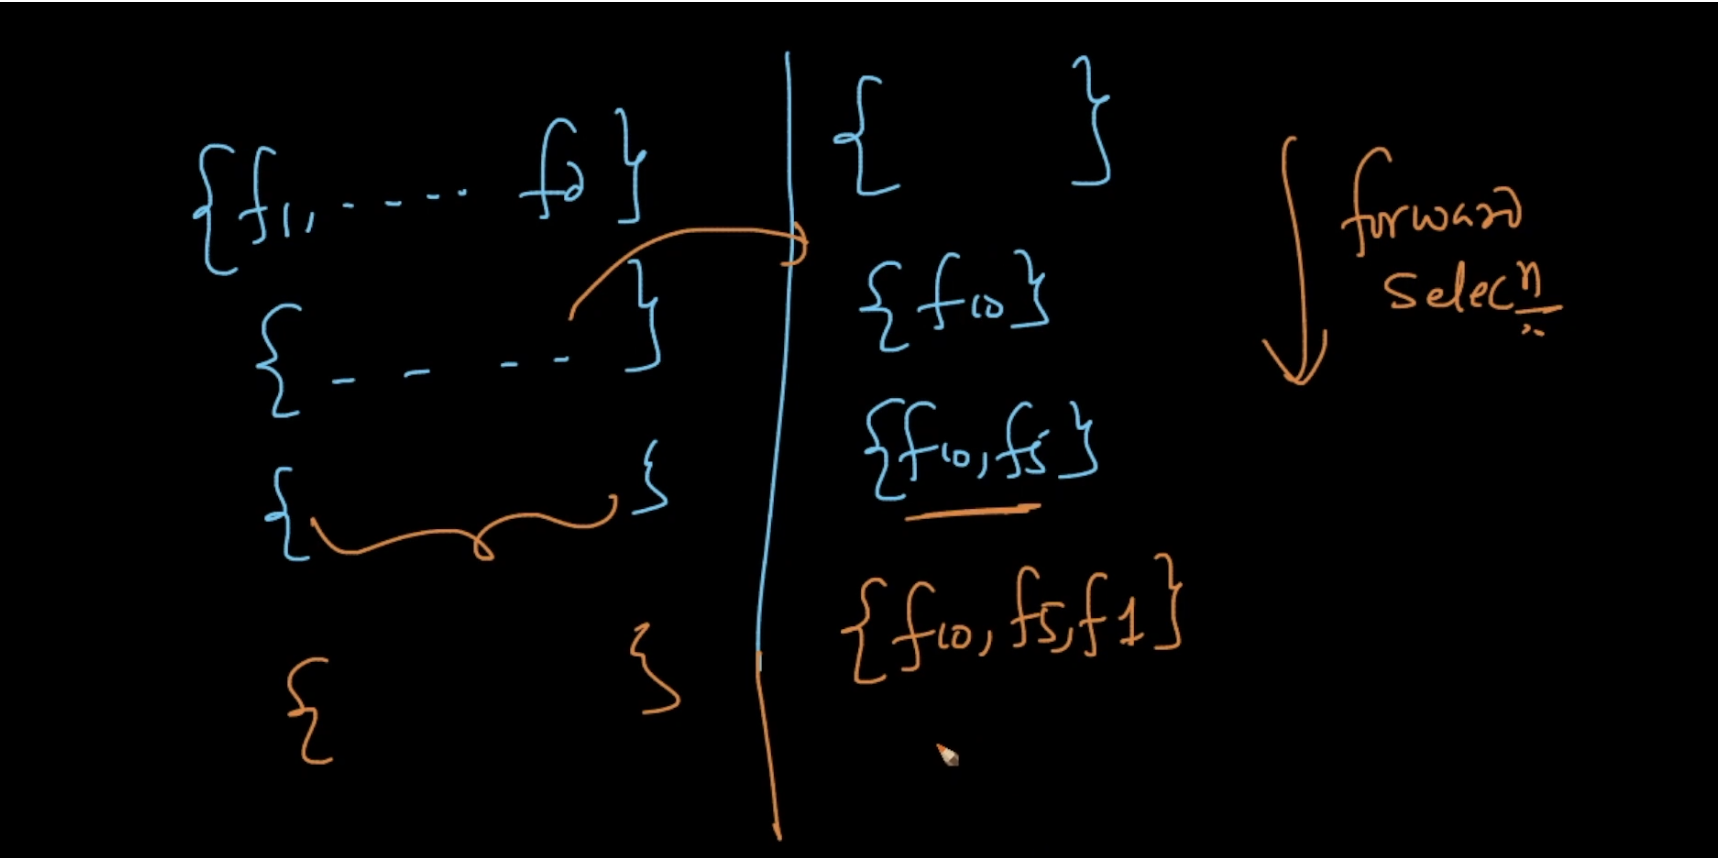 {f1, .... fd}
{ }
{ - - - - }
{f10}
{ }
{f10, f5}
{ }
{f10, f5, f1}
forward
selecn